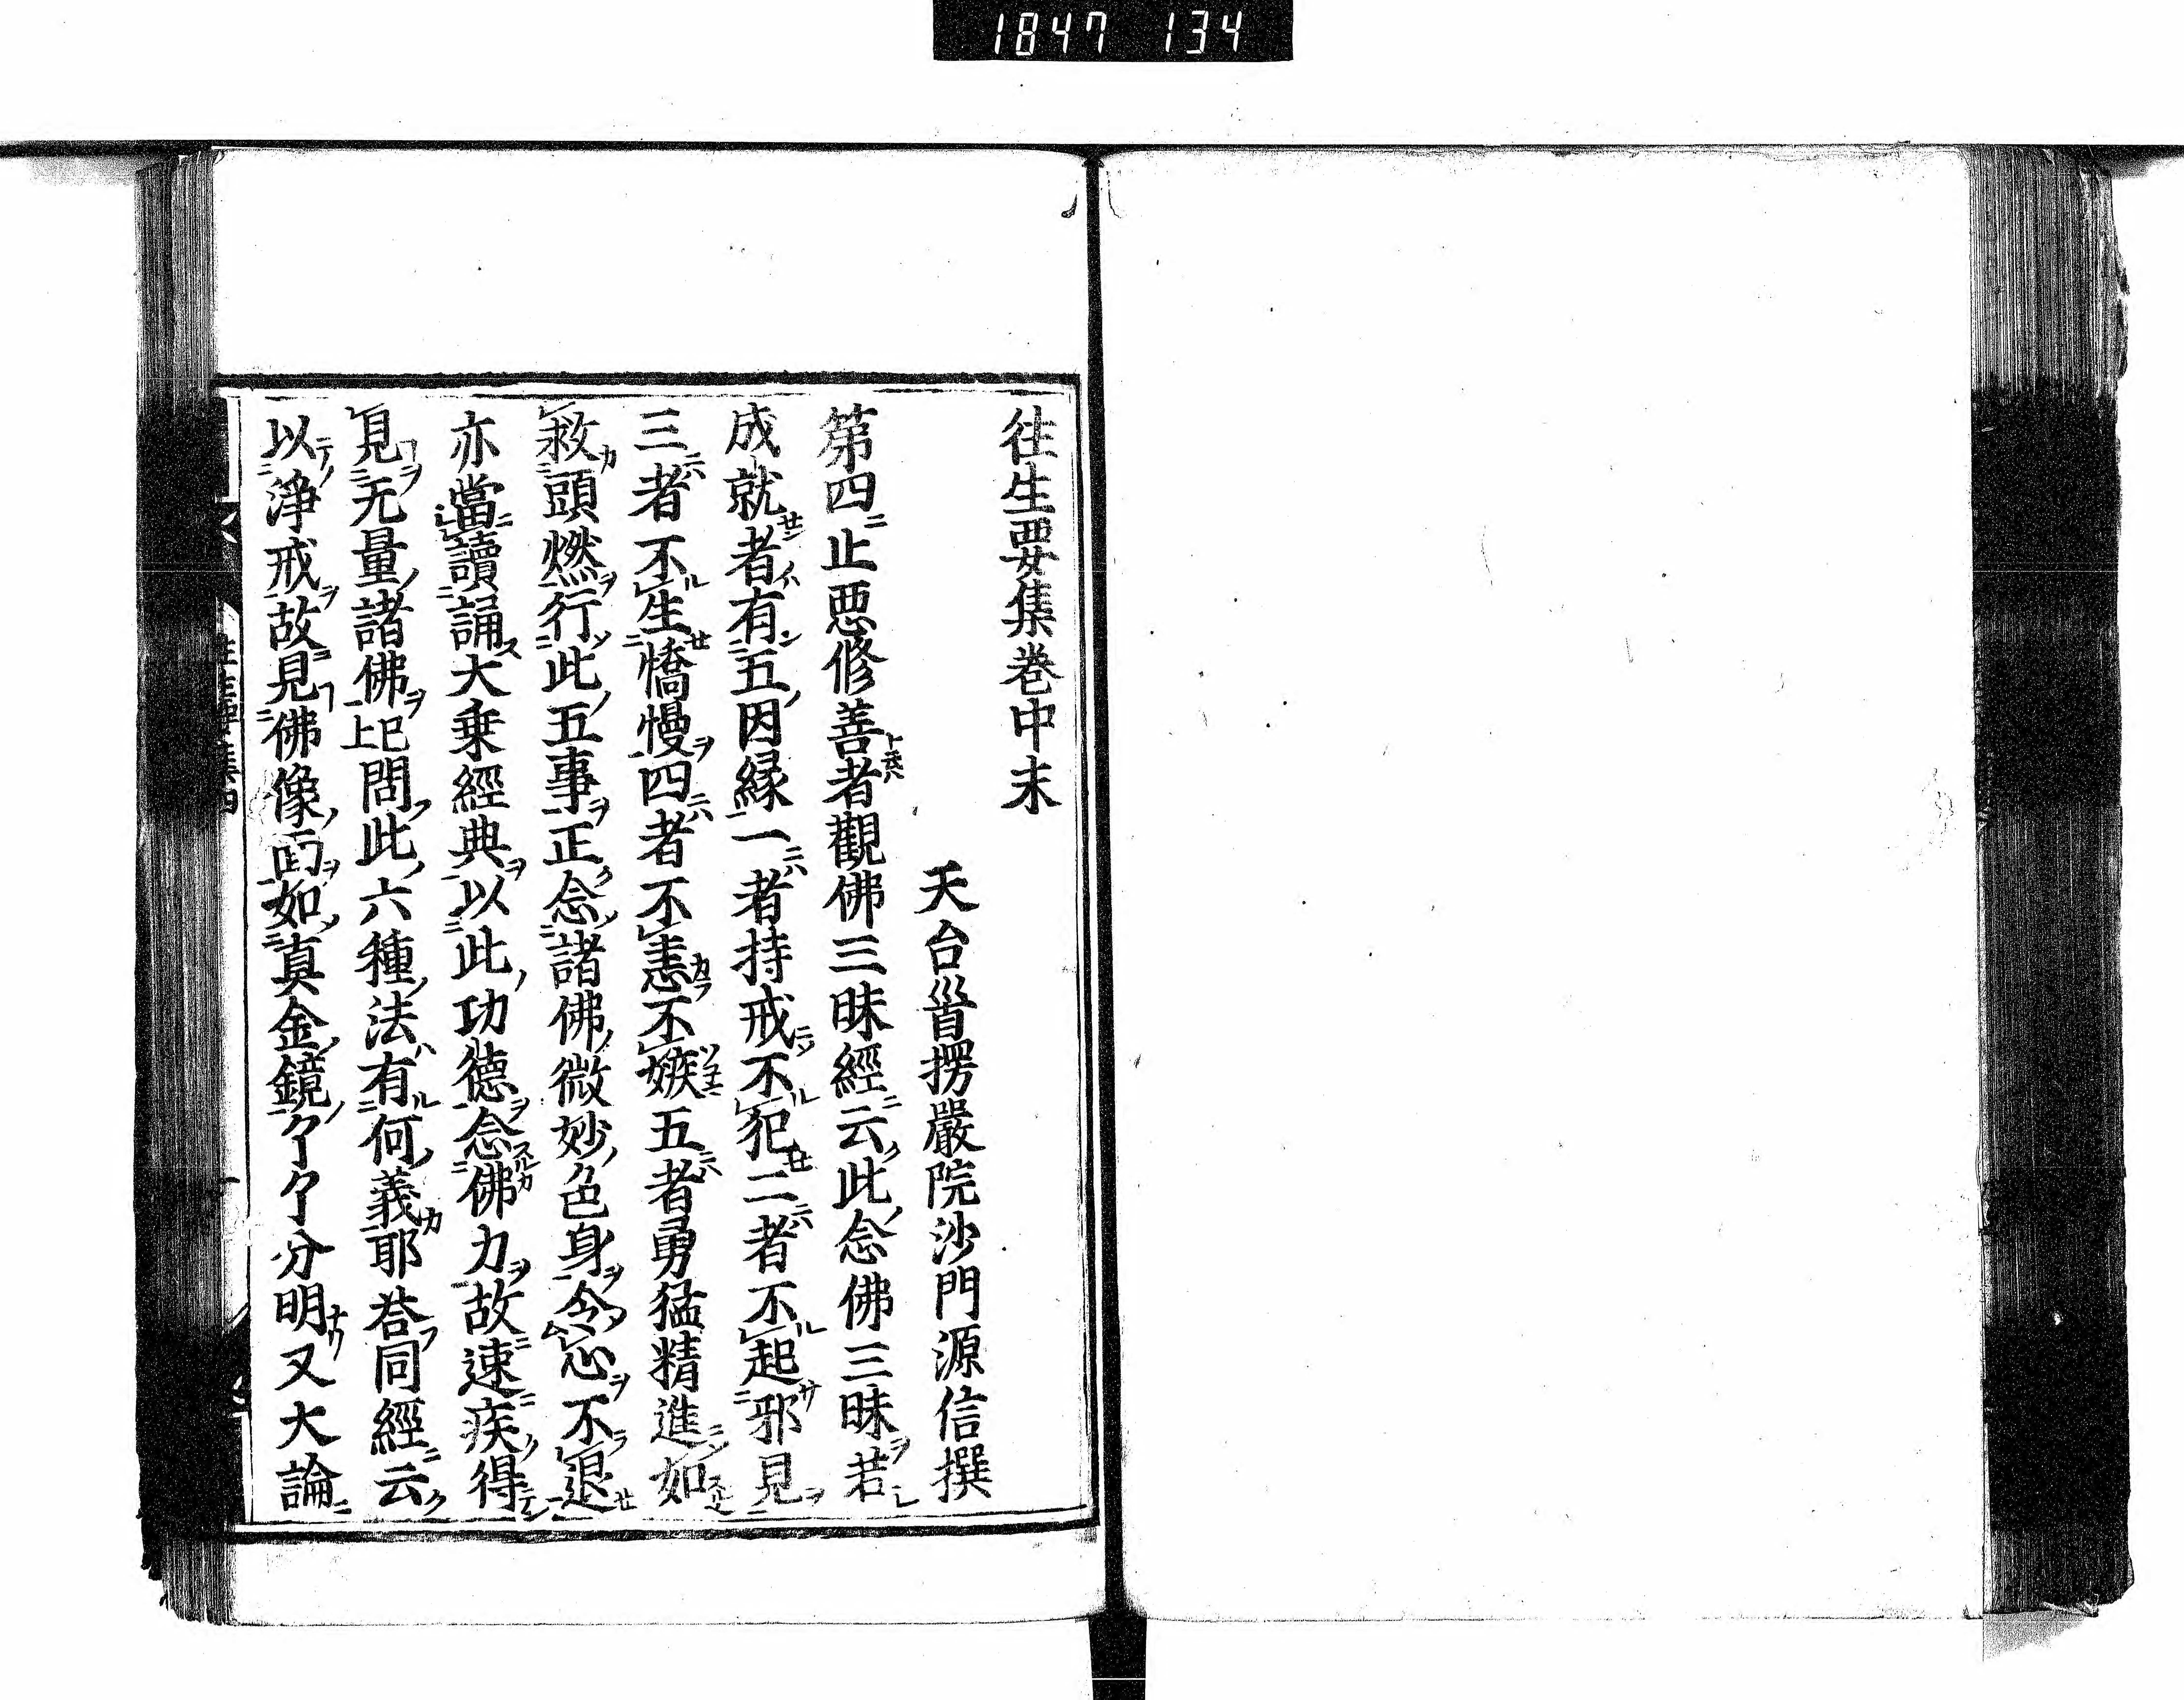 1847 134
往生要集巻中末
天台首楞嚴院沙門源信撰
第四止惡修善者觀佛三昧經云此念佛三昧若
成就者有五因縁一者持戒不犯二者不起邪見
三者不生憍慢四者不恚不嫉五者勇猛精進如
救頭燃行此五事正念諸佛微妙色身令心不退
亦當讀誦大乗經典以此功德念佛力故速疾得
見无量諸佛上已問此六種法有何義耶荅同經云
以淨戒故見佛像面如真金鏡了了分明又大論